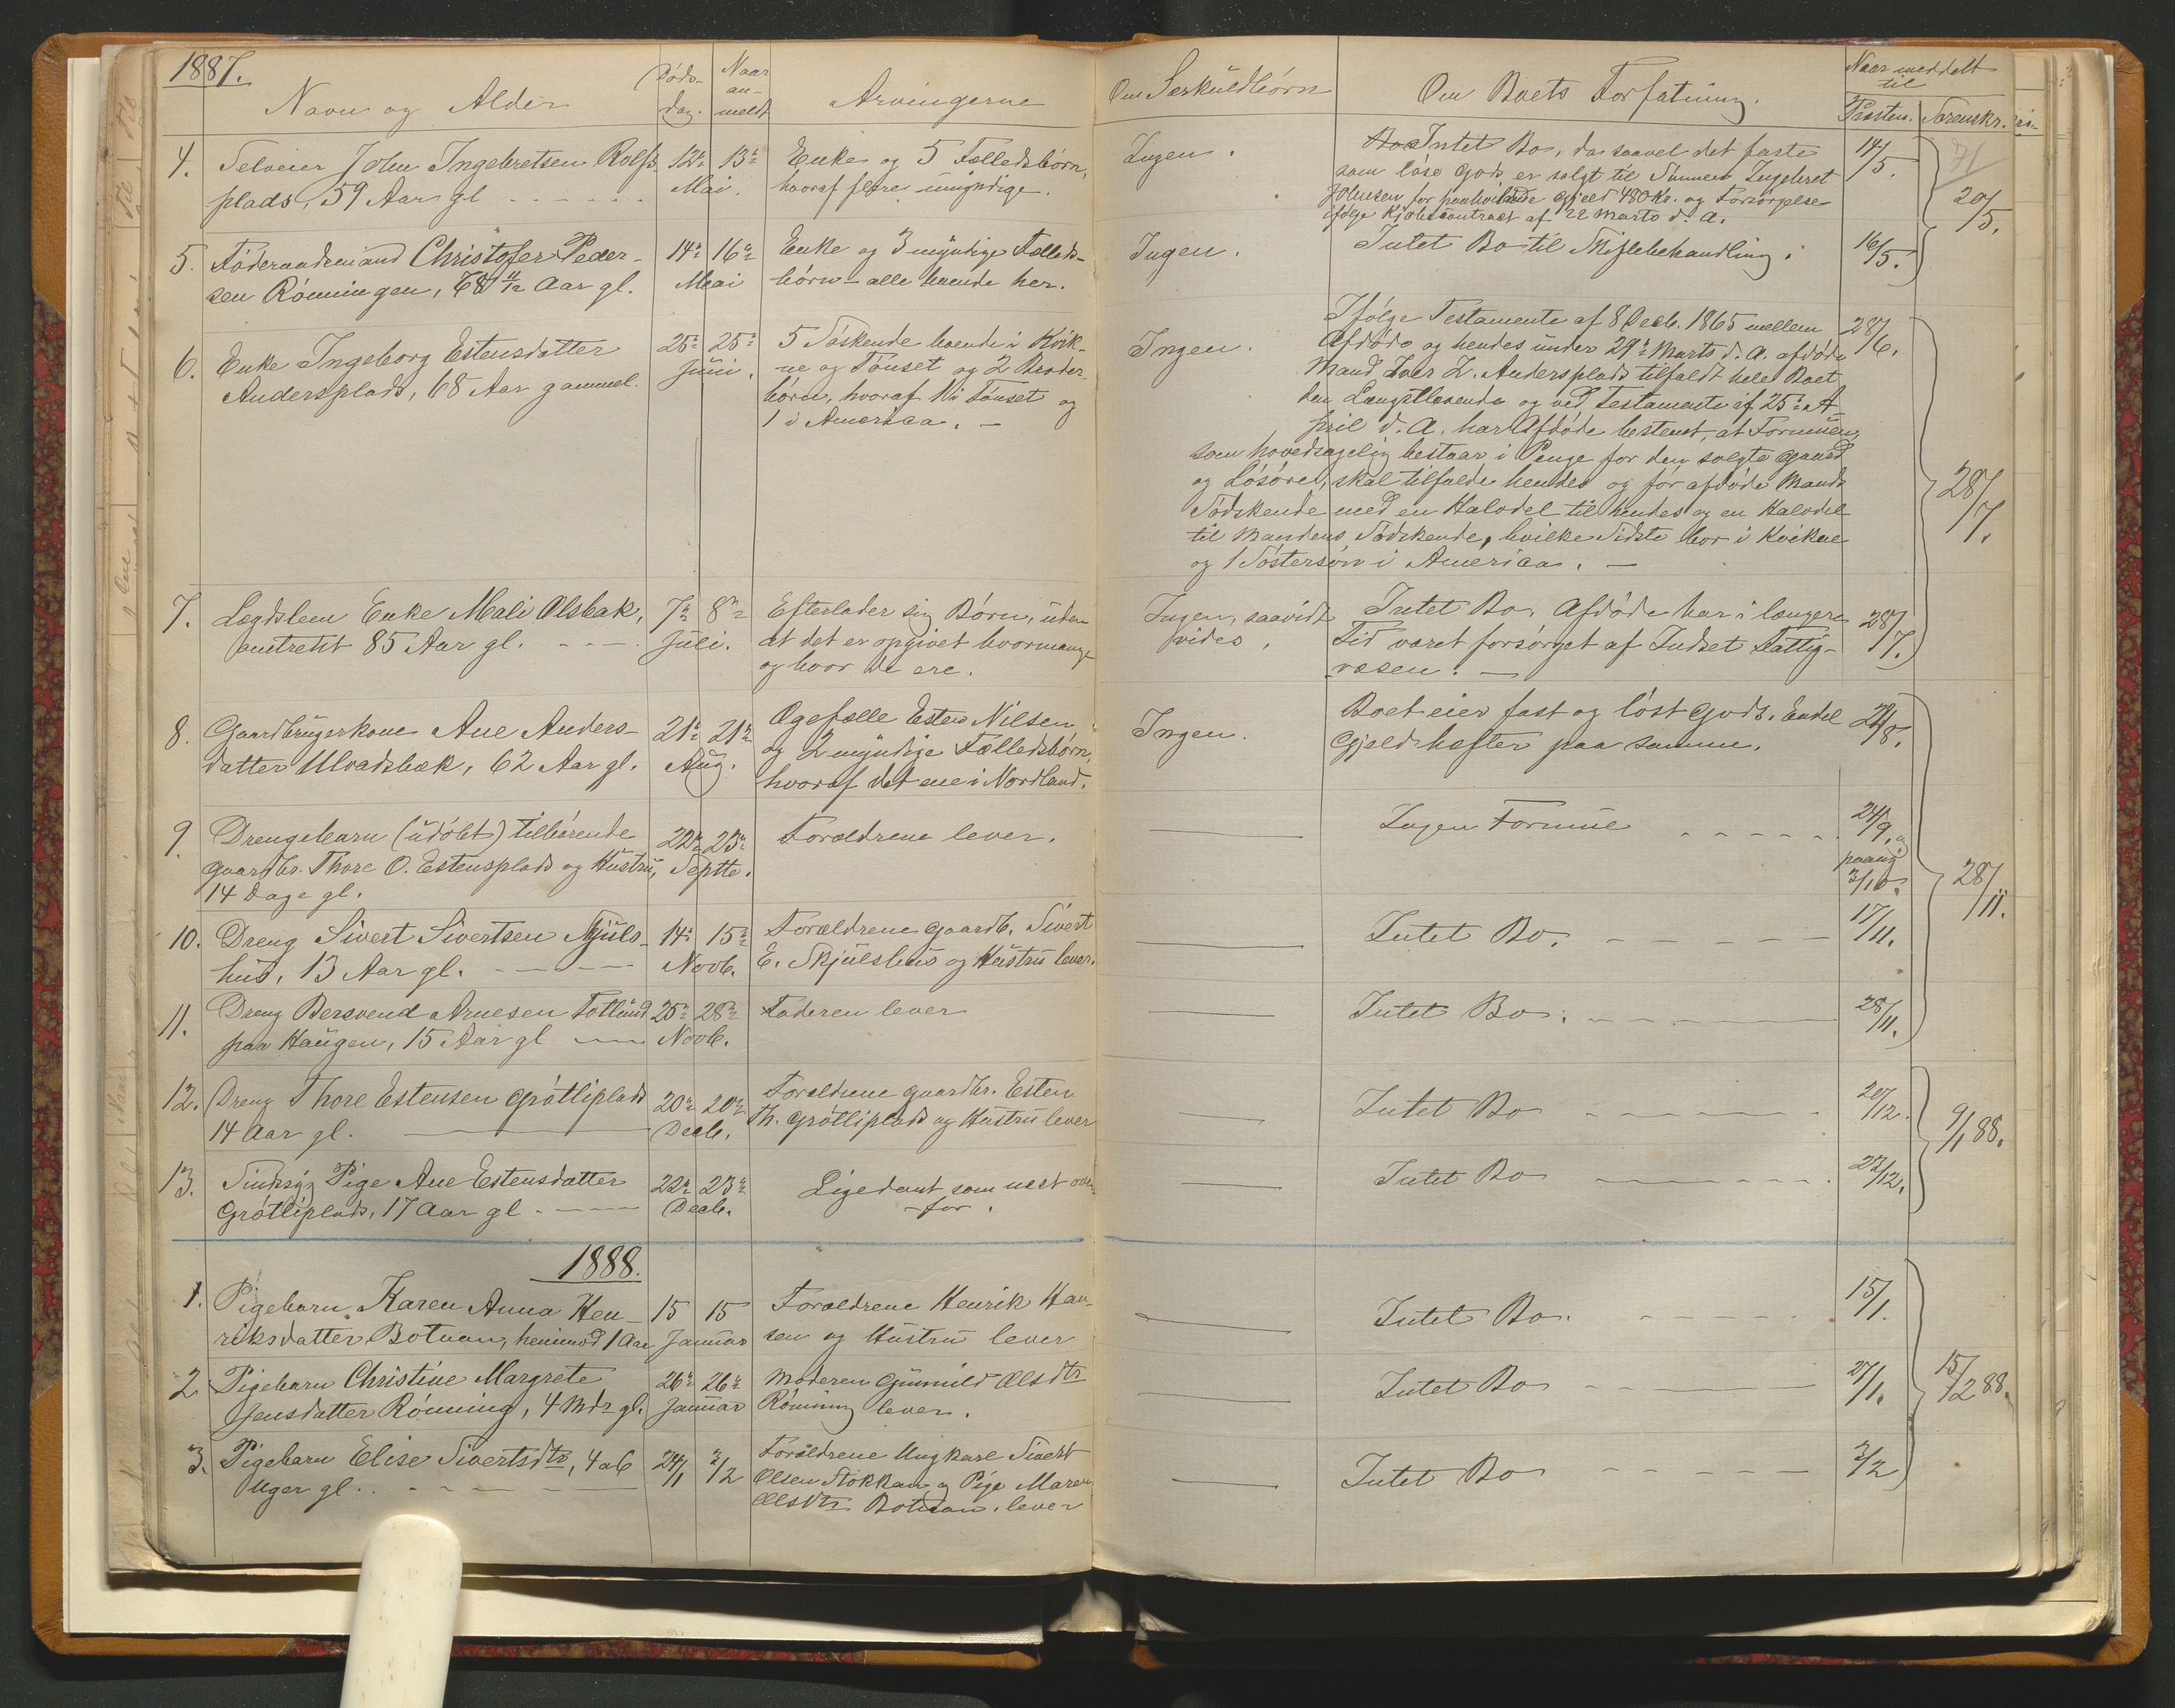 1887.
Navn og Alder
Døds-
dag.
Naar
an-
meldt
Arvingerne
Om Særkuldbörn
Om Boets Forfatning.
Naar meddelt
til
Præsten. Sorenskr.
4. Selveier John Ingebretsen Rolfs- 12te 13de Enke og 5 Fælledsbörn, Ingen. Intet Bo, da saavel det faste 14/5.
plads, 59 Aar gl Mai. hvoraf flere umyndige. som löse Gods er solgt til Sönnen Ingebret
Johnsen for paahvilende Gjeld 480 Kr. og Forsörgelse 20/5.
ifölge Kjöbecontract af 22 Marts d. A.
5. Föderaadsmand Christofer Peder- 14de 16de Enke og 3 myndige Fælleds- Ingen. Intet Bo til Skiftebehandling. 16/5.
sen Rönningen, 68 11/12 Aar gl. Mai börn - alle boende her.
6. Enke Ingeborg Estensdatter 25de 25de 5 Söskende boende i Kvik- Ingen. Ifölge Testamente af 8 Decb. 1865 mellem 28/6.
Andersplads, 68 Aar gammel. Juni. ne og Tönset og 2 Broder- Afdöde og hendes under 29de Marts d. A. afdöde
börn, hvoraf 1 i Tönset og Mand Iver I. Andersplads tilfaldt hele Boet
1 i America. den Længstlevende og ved Testamente af 25de A-
pril d. A. har Afdöde bestemt, at Formuen,
som hovedsagelig bestaar i Penge for den solgte Gaard
og Lösöre, skal tilfalde hendes og for afdöde Mands
Södskende med en Halvdel til hendes og en Halvdel 28/7.
til Mandens Södskende, hvilke Sidste bor i Kvikne
og 1 Söstersön i America.
7. Lægdslem Enke Mali Olsbak, 7de 8de Efterlader sig Börn, uden Ingen, saavidt Intet Bo. Afdöde har i længere 28/7.
omtrent 85 Aar gl. Juli. at det er opgivet hvormange vides. Tid været forsörget af Indset Fattig-
og hvor de ere. væsen.
8. Gaardbrugerkone Ane Anders- 21de 21de Ægefælle Esten Nilsen Ingen. Boet eier fast og löst Gods. Endel 24/8.
datter Ulvadsbæk, 62 Aar gl. Aug. og 2 myndige Fælledsbörn, Gjeld hæfter paa samme.
hvoraf det ene i Nordland.
9. Drengebarn (udöbt) tilhörende 22de 23de Forældrene lever. Ingen Formue 24/9.
Gaardbr. Thore O. Estensplads og Hustru, Septbr. paany 3/10. 28/11.
14 Dage gl.
10. Dreng Sivert Sivertsen Skjuls- 14de 15de Forældrene Gaardb. Sivert Intet Bo. 17/11.
hus, 13 Aar gl. Novb. E. Skjulshus og Hustru lever.
11. Dreng Bersvend Arnesen Fotlund 25de 28de Faderen lever Intet Bo. 28/11.
paa Haugen, 15 Aar gl Novb.
12. Dreng Thore Estensen Grötliplads 20de 20de Forældrene Gaardbr. Esten Intet Bo 20/12.
14 Aar gl. Decb. Th. Grötliplads og Hustru lever 9/1 88.
13. Sindssyg Pige Ane Estensdatter 22de 23de Ligedant som næst oven- Intet Bo 23/12.
Grötliplads, 17 Aar gl. Decb. for.
1888.
1. Pigebarn Karen Anna Hen- 15 15 Forældrene Henrik Han- Intet Bo. 15/1.
riksdatter Botnan, henimod 1 Aar Januar sen og Hustru lever
2. Pigebarn Christine Margrete 26de 26de Moderen Gunnild Olsdtr Intet Bo 27/1. 15/2 88.
Jensdatter Rönning, 4 Mdr gl. Januar Rönning lever.
3. Pigebarn Elise Sivertsdtr, 4 a 6 24/1 3/2 Forældrene Ungkarl Sivert Intet Bo 3/2
Uger gl. Olsen Stokkan og Pige Maren
Olsdtr Botnan lever